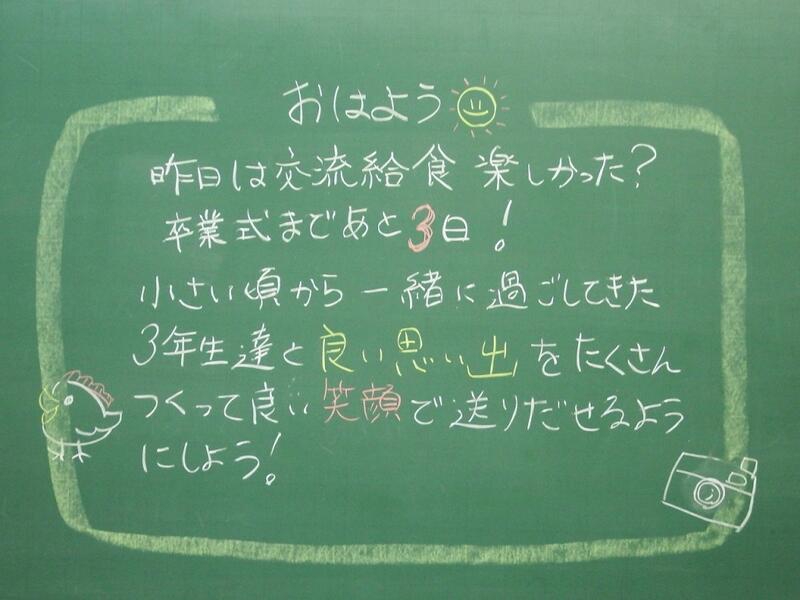 おはよう
昨日は交流給食 楽しかった?
卒業式まであと3日!
小さい頃から一緒に過ごしてきた
3年生達と良い思い出をたくさん
つくって良い笑顔で送りだせるよう
にしよう!